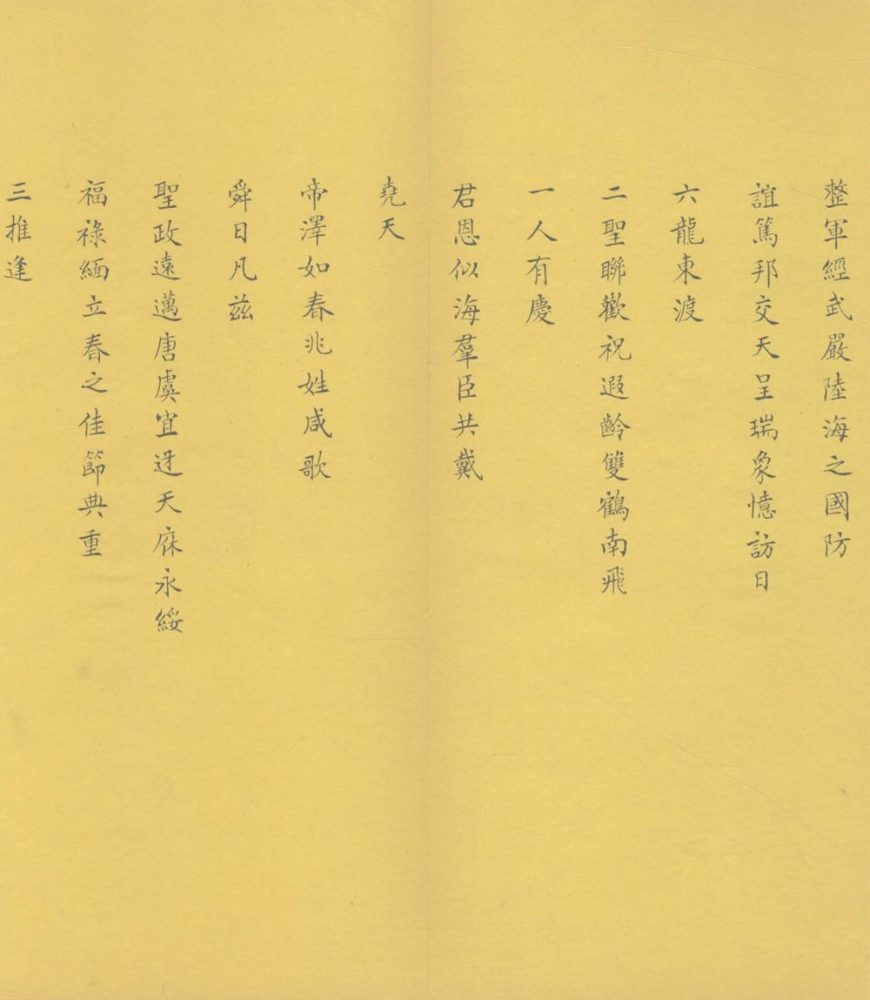 整軍經武嚴陸海之國防
誼篤邦交天呈瑞象憶訪日
六龍東渡
二聖聯歡祝遐齡雙鶴南飛
一人有慶
君恩似海羣臣共戴
堯天
帝澤如春兆姓咸歌
舜日凡茲
聖政遠邁唐虞宜迓天庥永綏
福祿緬立春之佳節典重
三推逢